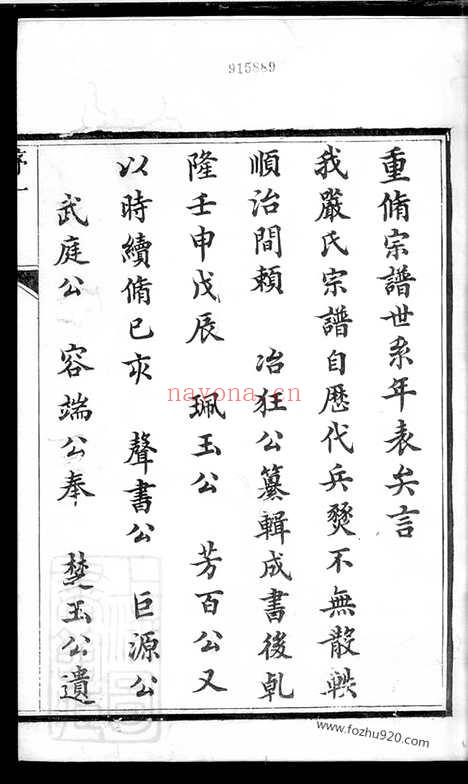 915889
重脩宗譜世系年表矣言
我嚴氏宗譜自歷代兵燹不無散軼
順治間賴 冶狂公纂輯成書後乹
隆壬申戊辰 珮玉公 芳百公又
以時續脩已亥 聲書公 巨源公
武庭公 容端公奉 楚玉公遺
序一
nayona.cn
www.fozhu920.com